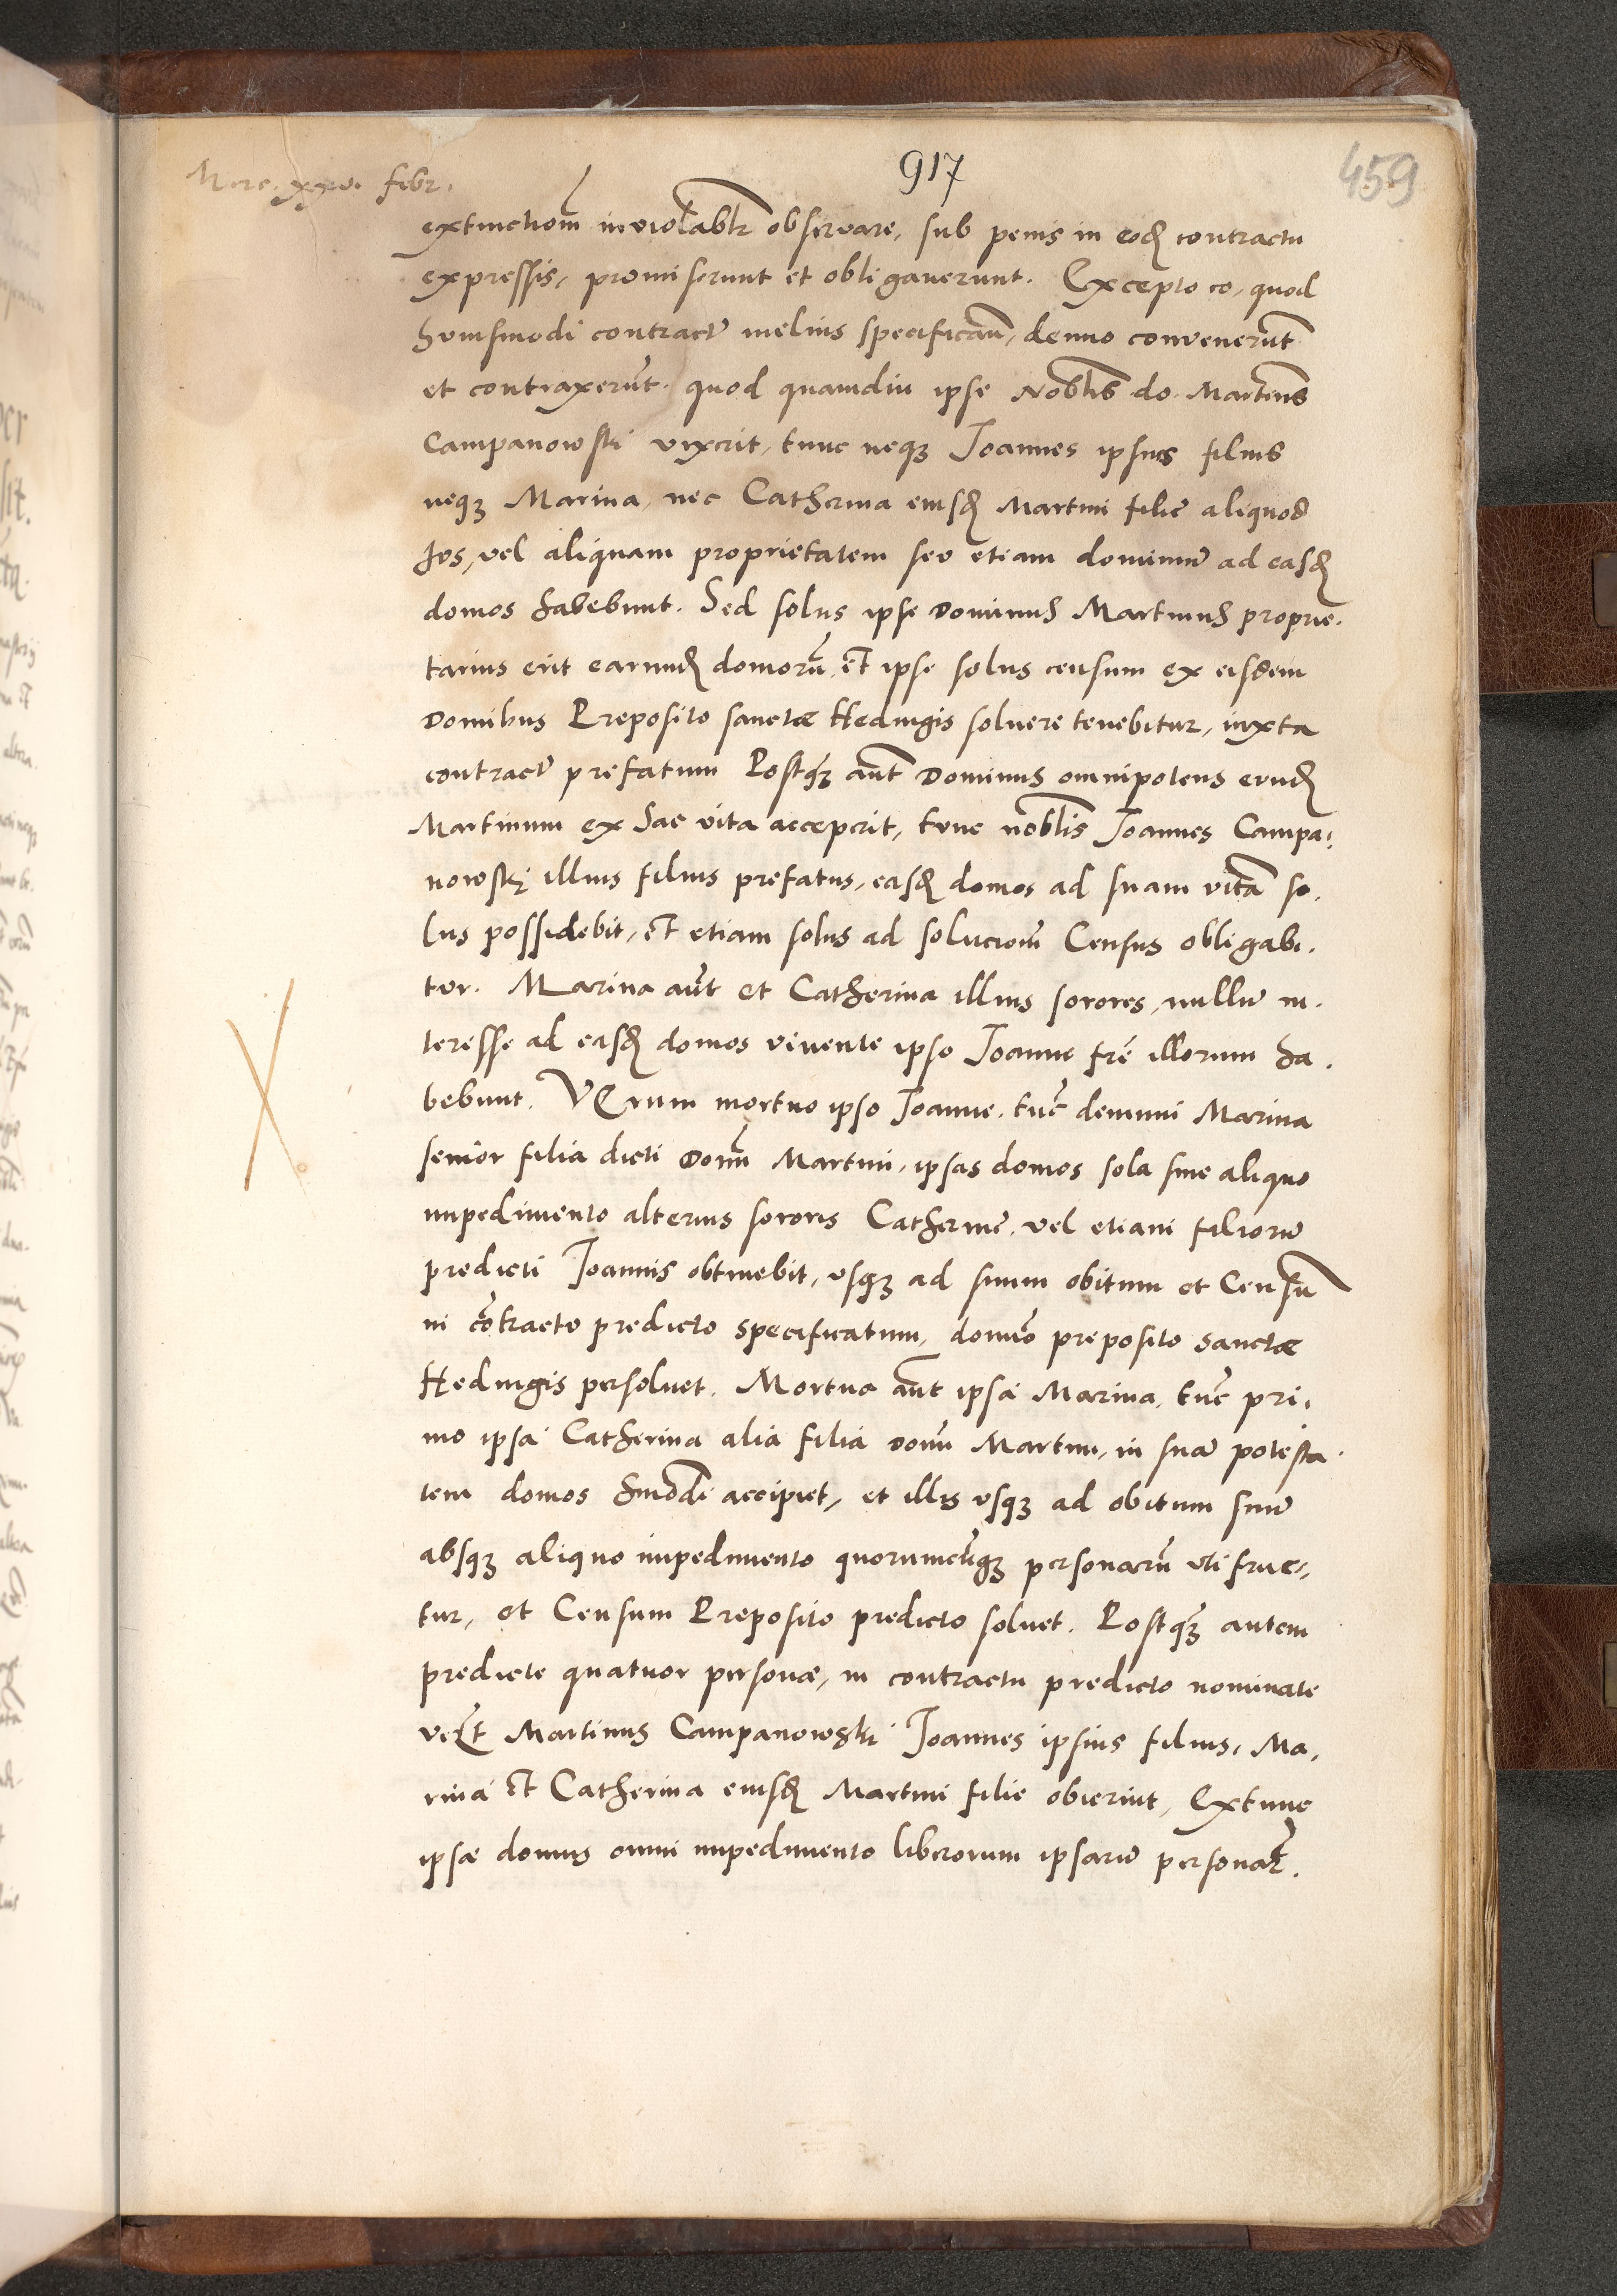 917
459
Merc. xxv. febr.
extinctioñ inviolablr observare, sub penis in eodꝫ contractu
expressis, promiserunt et obligaverunt. Excepto eo, quod
huiusmodi contractū melius specificañ, denuo convenerūt
et contraxerūt. quod quamdiu ipse Nobłis do. Martinus
Campanowski vixerit, tunc neqꝫ Joannes ipsius filius
neqꝫ Marina, nec Catherina eiusdꝫ Martini filie aliquod
Ius, vel aliquam proprietatem seu etiam dominiū ad easdꝫ
domos habebunt. Sed solus ipse Dominus Martinus proprie.
tarius erit earundꝫ domorū, et ipse solus censum ex eisdem
Domibus Preposito sanctæ Hedvigis soluere tenebitur, iuxta
contractū prefatum Postqꝫ aūt Dominus omnipotens eundꝫ
Martinum ex hac vita acceperit, tunc nobłis Joannes Campa,
nowskj illius filius prefatus, easdꝫ domos ad suam vitā so.
lus possidebit, et etiam solus ad solucioñ Census obligabi.
tur. Marina aūt et Catherina illius sorores, nullū in.
teresse ad easdꝫ domos vivente ipso Joanne frē illorum ha.
bebunt. VErum mortuo ipso Joanne. tūc demum Marina
senior filia dicti Domī Martini, ipsas domos sola sine aliquo
impedimento alterius sororis Catherine, vel etiam filiorū
predicti Joannis obtinebit, usqꝫ ad suum obitum et Censū
in cōtractu predicto specificatum, domīo preposito sanctæ
Hedvigis persoluet. Mortua aūt ipsa Marina, tūc pri,
mo ipsa Catherina alia filia Domī Martini, in suā potesta.
tem domos hmōdi accipiet, et illis usqꝫ ad obitum suū
absqꝫ aliquo impedimento quorumcūqꝫ personarū uti frue,
tur, et Censum Preposito predicto soluet. Postqꝫ autem
predicte quatuor personæ, in contractu predicto nominate
vełt Martinus Campanowski Joannes ipsius filius, Ma,
rina et Catherina eiusdꝫ Martini filie obierint, Extunc
ipsæ domus omni impedimento liberorum ipsarū personaꝝ.